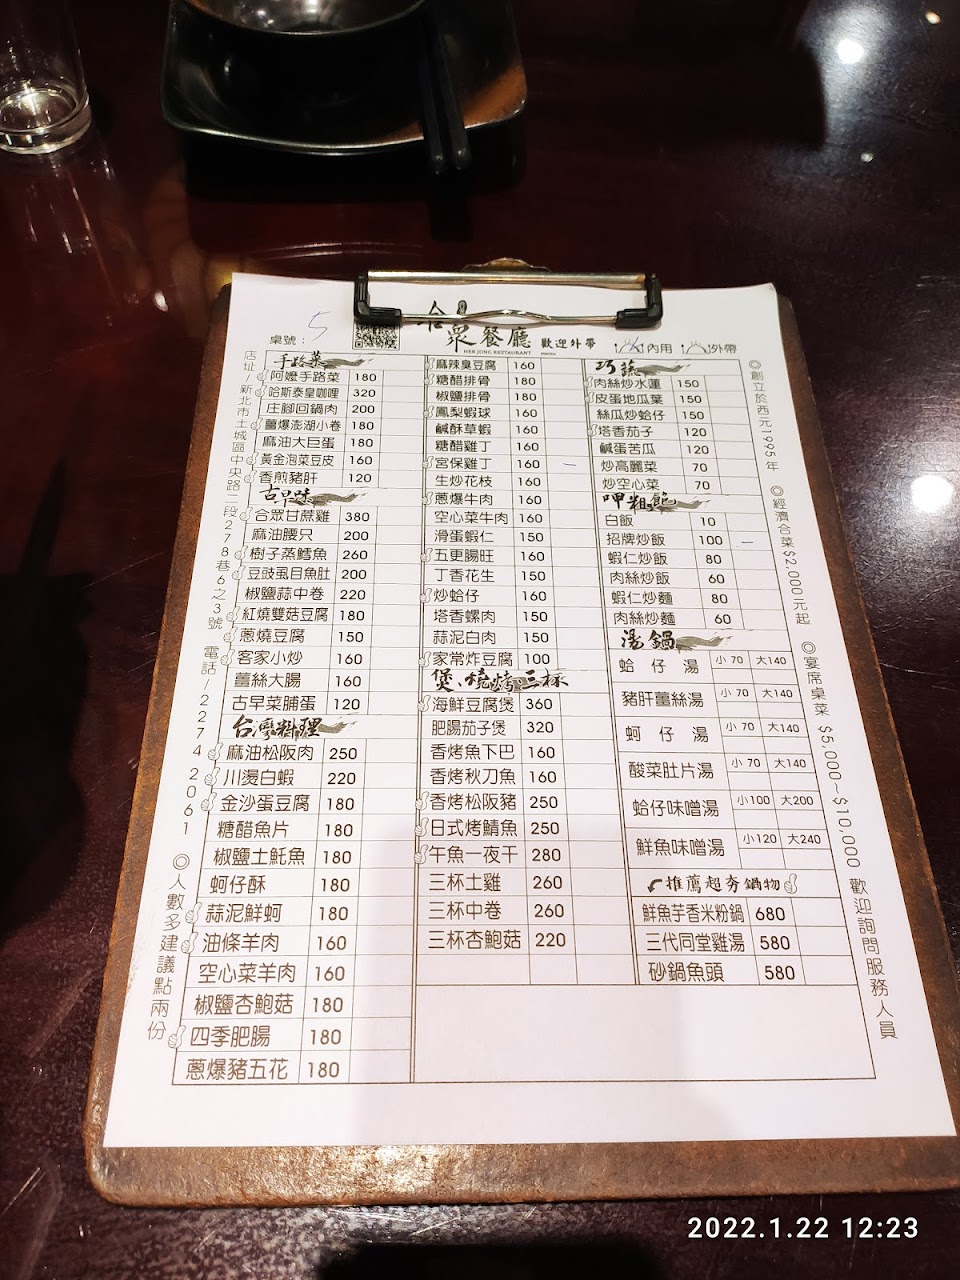 桌號： 5
合眾餐廳 歡迎外帶
HER JONG RESTAURANT
內用 外帶
店址／新北市土城區中央路二段278巷6之3號 電話／2274 2061 ◎人數多建議點兩份
手路菜
阿嬤手路菜 180
哈斯泰皇咖哩 320
庄腳回鍋肉 200
薑爆澎湖小卷 180
麻油大巨蛋 180
黃金泡菜豆皮 160
香煎豬肝 120
古早味
合眾甘蔗雞 380
麻油腰只 200
樹子蒸鱈魚 260
豆豉虱目魚肚 200
椒鹽蒜中卷 220
紅燒雙菇豆腐 180
蔥燒豆腐 150
客家小炒 160
薑絲大腸 160
古早菜脯蛋 120
台灣料理
麻油松阪肉 250
川燙白蝦 220
金沙蛋豆腐 180
糖醋魚片 180
椒鹽土魠魚 180
蚵仔酥 180
蒜泥鮮蚵 180
油條羊肉 160
空心菜羊肉 160
椒鹽杏鮑菇 180
四季肥腸 180
蔥爆豬五花 180
麻辣臭豆腐 160
糖醋排骨 180
椒鹽排骨 180
鳳梨蝦球 160
鹹酥草蝦 160
糖醋雞丁 160
宮保雞丁 160 一
生炒花枝 160
蔥爆牛肉 160
空心菜牛肉 160
滑蛋蝦仁 150
五更腸旺 160
丁香花生 150
炒蛤仔 160
塔香螺肉 150
蒜泥白肉 150
家常炸豆腐 100
煲、燒烤、三杯
海鮮豆腐煲 360
肥腸茄子煲 320
香烤魚下巴 160
香烤秋刀魚 160
香烤松阪豬 250
日式烤鯖魚 250
午魚一夜干 280
三杯土雞 260
三杯中卷 260
三杯杏鮑菇 220
巧蔬
肉絲炒水蓮 150
皮蛋地瓜葉 150
絲瓜炒蛤仔 150
塔香茄子 120
鹹蛋苦瓜 120
炒高麗菜 70
炒空心菜 70
呷粗飽
白飯 10
招牌炒飯 100 一
蝦仁炒飯 80
肉絲炒飯 60
蝦仁炒麵 80
肉絲炒麵 60
湯鍋
蛤仔湯 小70 大140
豬肝薑絲湯 小70 大140
蚵仔湯 小70 大140
酸菜肚片湯 小70 大140
蛤仔味噌湯 小100 大200
鮮魚味噌湯 小120 大240
推薦超夯鍋物
鮮魚芋香米粉鍋 680
三代同堂雞湯 580
砂鍋魚頭 580
◎創立於西元1995年 ◎經濟合菜$2,000元起 ◎宴席桌菜$5,000~$10,000 歡迎詢問服務人員
2022.1.22 12:23